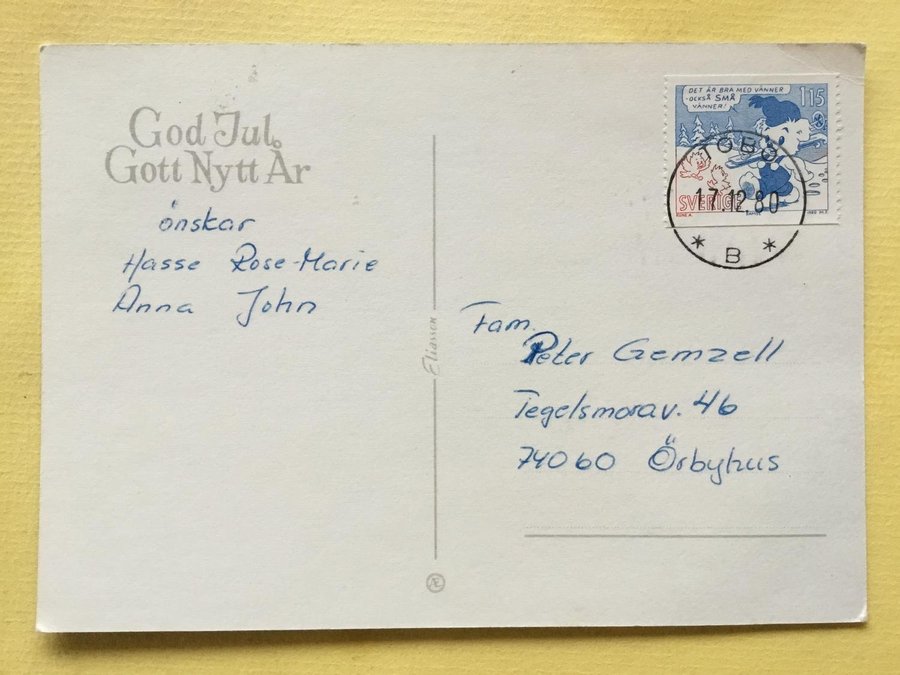 God Jul
Gott Nytt År
önskar
Hasse Rose-Marie
Anna John
Eliasson
Æ
DET ÄR BRA MED VÄNNER
-OCKSÅ SMÅ
VÄNNER!
115
SVERIGE
RUNE A.
BAMSE
1980 M.J.
TOBO
17.12.80
* B *
Fam.
Peter Gemzell
Tegelsmorav. 46
74060 Örbyhus